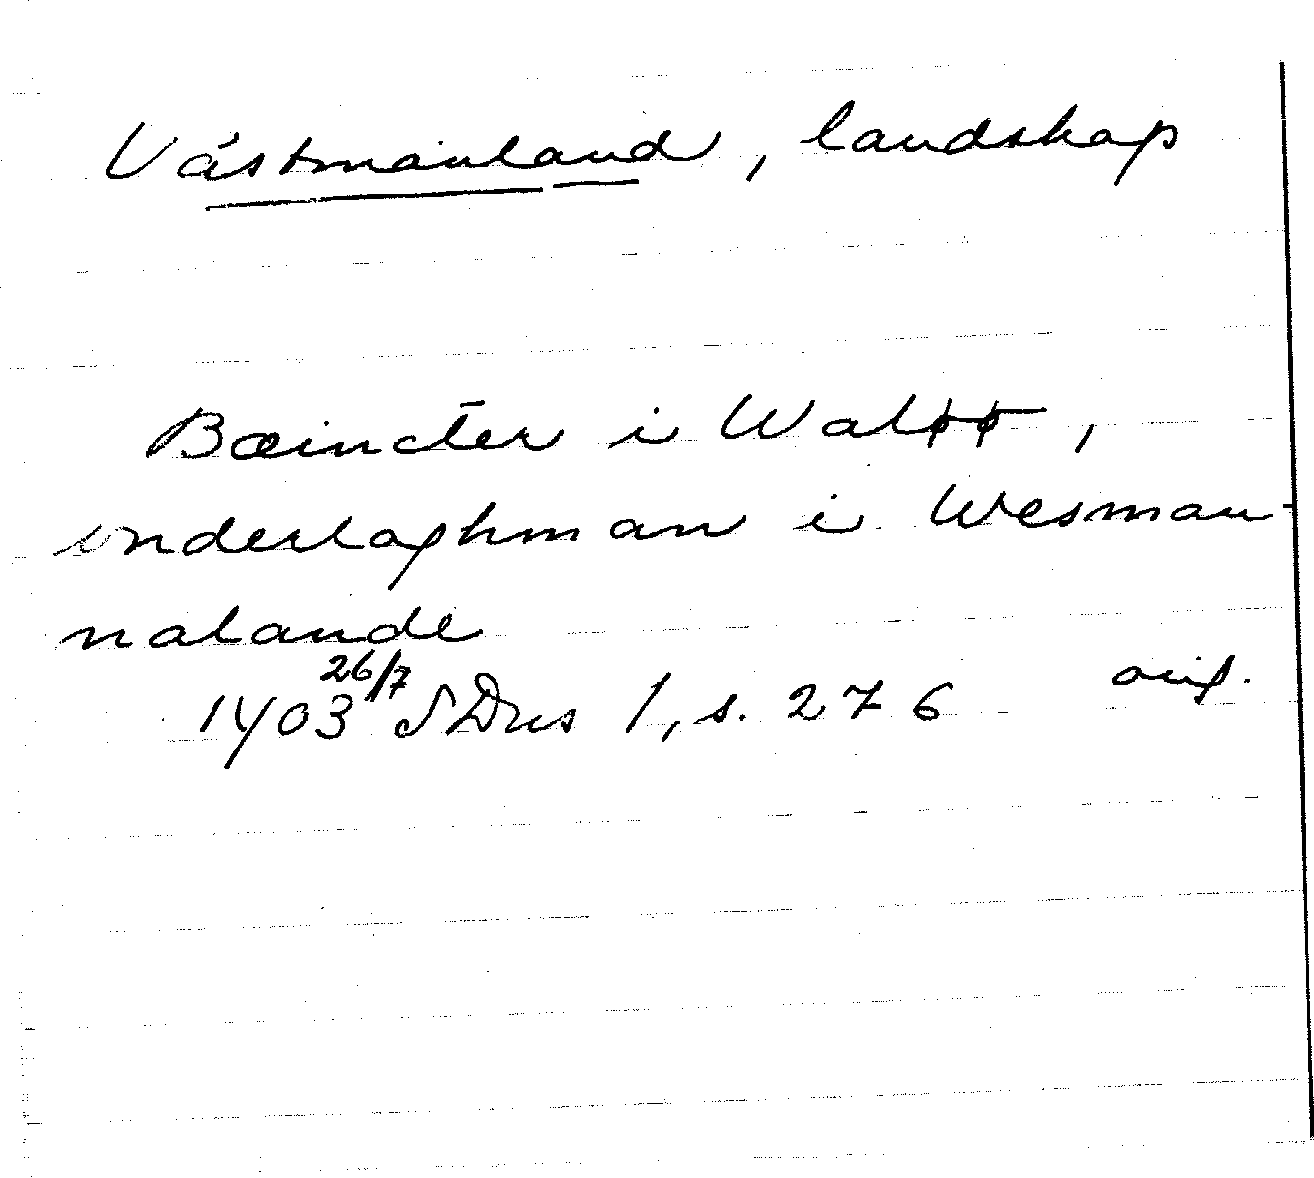 Västmanland, landskap
Bæincter i Waløø,
vnderlaghman i Wesman-
nalande
1403 26/7 SDns 1, s. 276 orig.